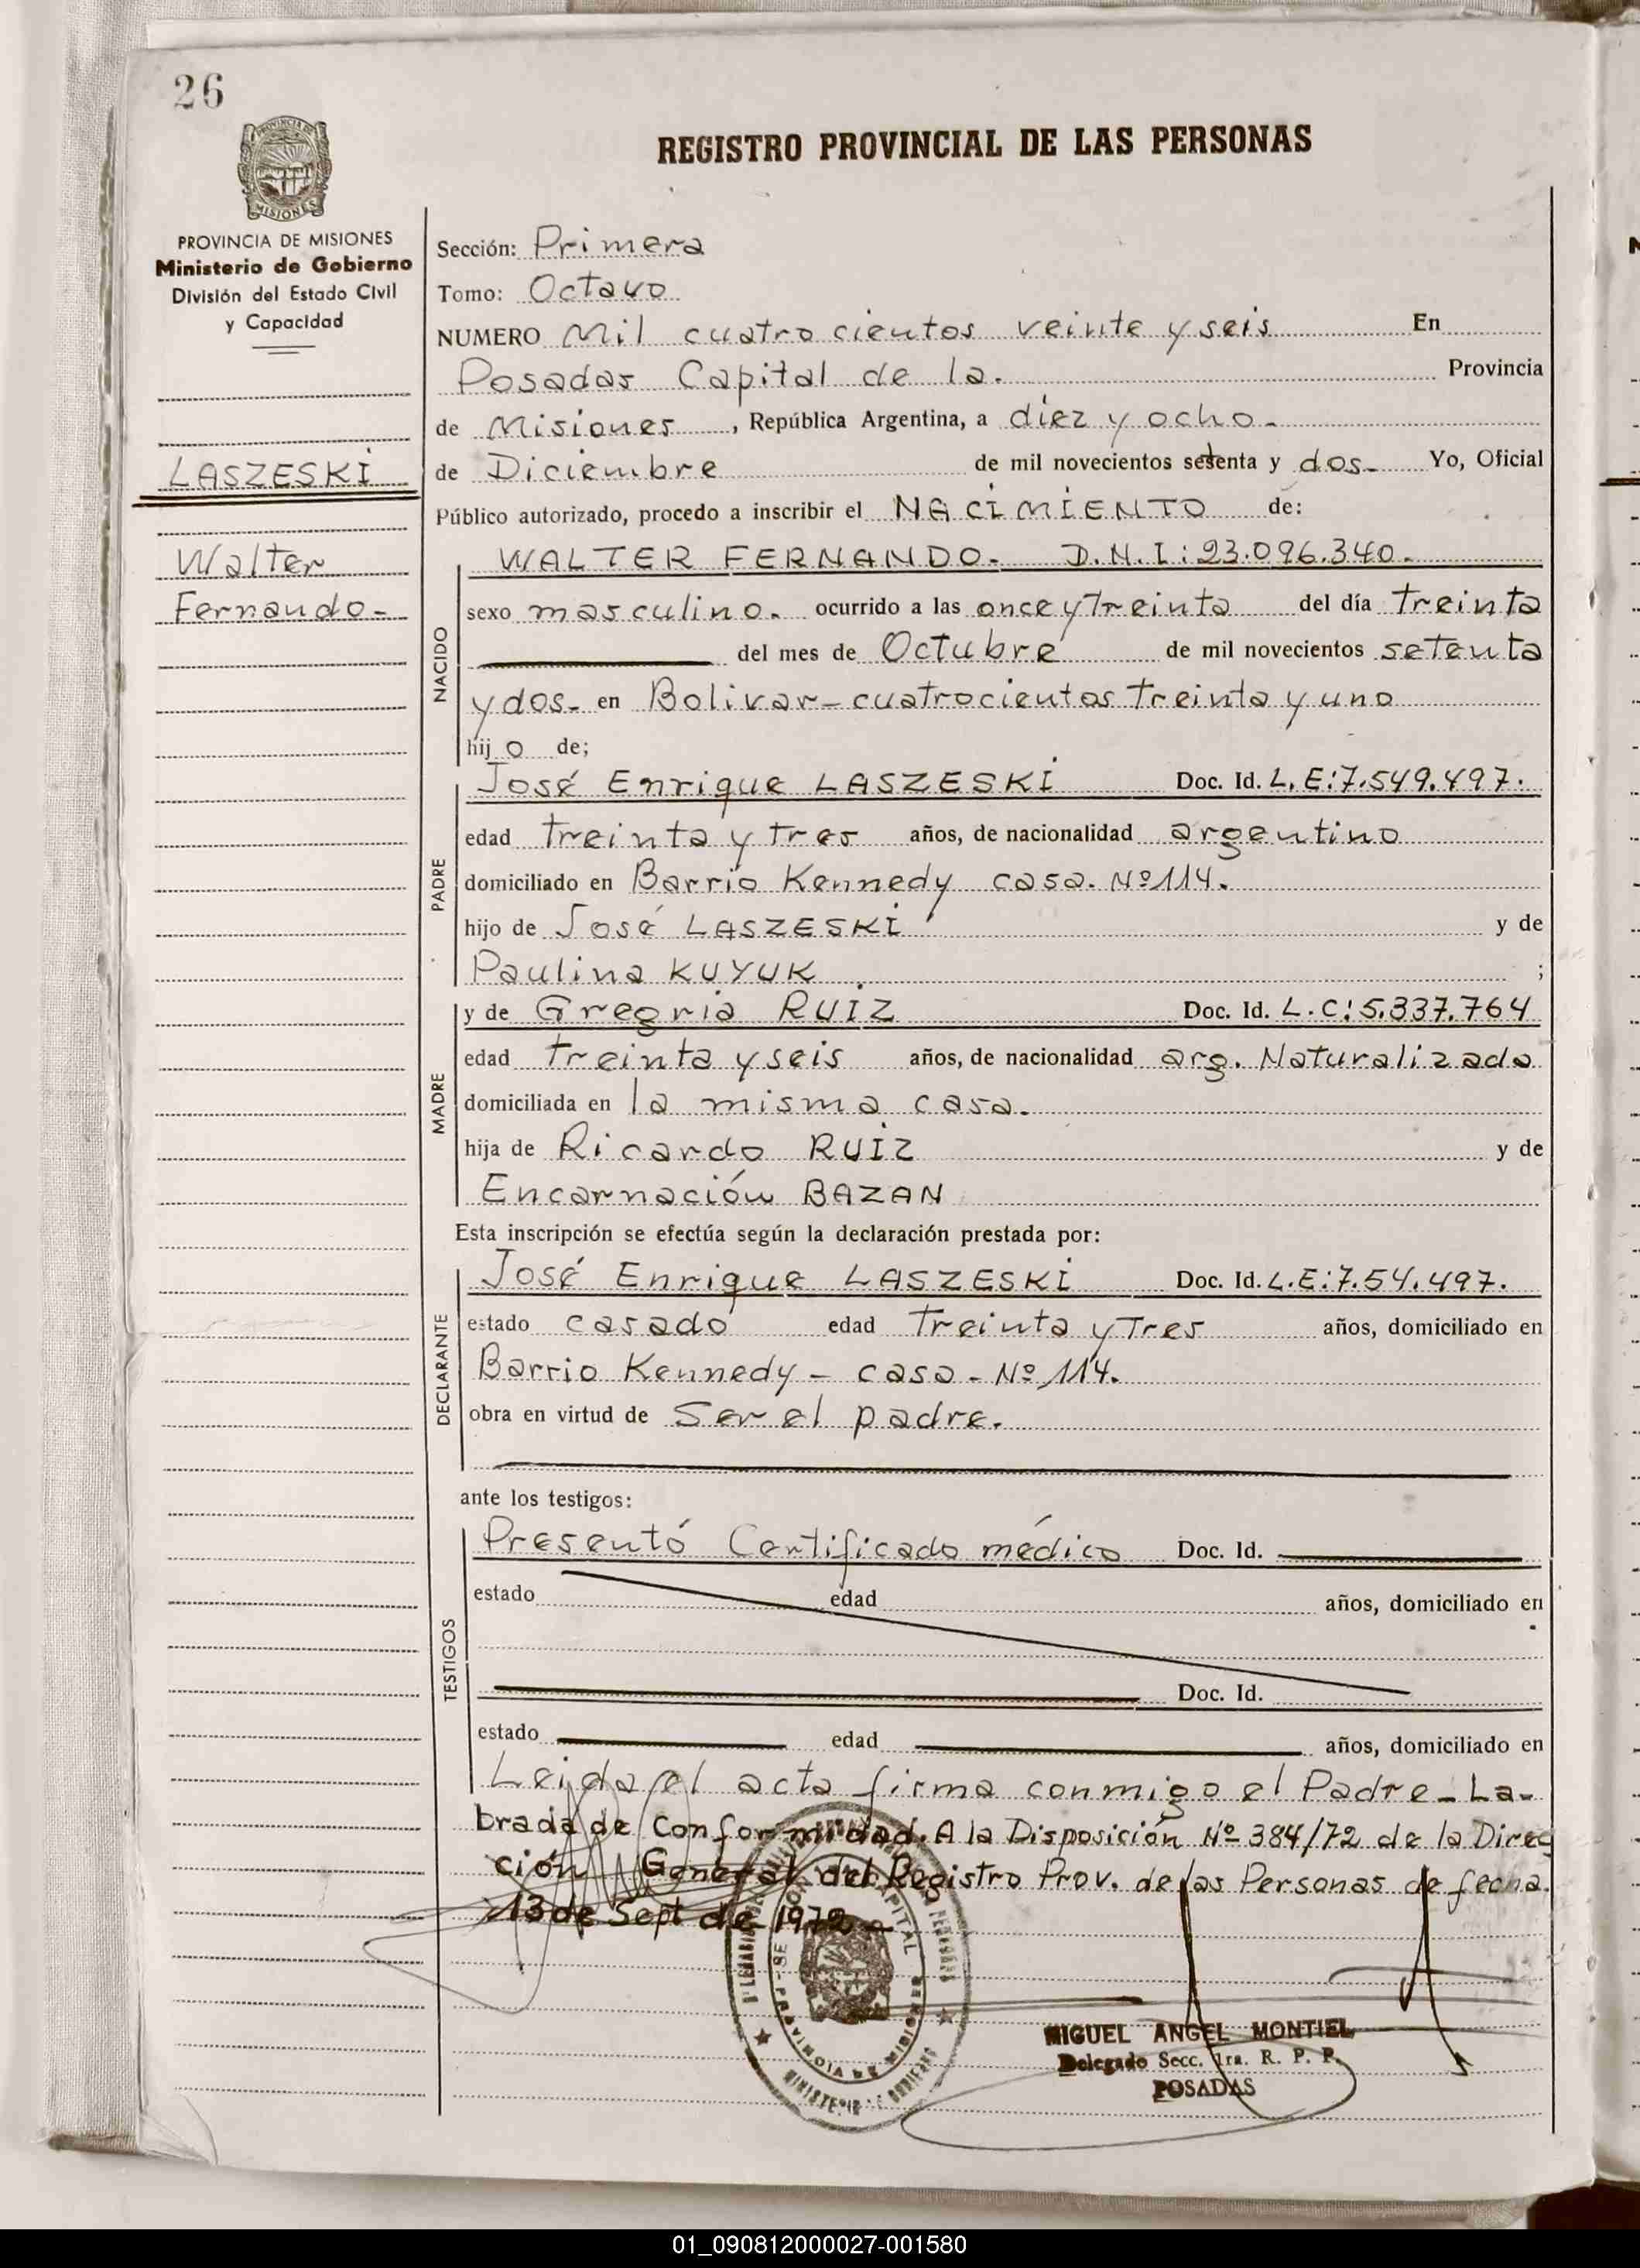 26
REGISTRO PROVINCIAL DE LAS PERSONAS
PROVINCIA DE MISIONES
Ministerio de Gobierno
División del Estado Civil
y Capacidad
LASZESKI
Walter
Fernando-
Sección: Primera
Tomo: Octavo
NUMERO Mil cuatro cientos veinte y seis En
Posadas Capital de la. Provincia
de Misiones, República Argentina, a diez y ocho-
de Diciembre de mil novecientos setenta y dos- Yo, Oficial
Público autorizado, procedo a inscribir el NACIMIENTO de:
NACIDO
WALTER FERNANDO- D.N.I: 23.096.340-
sexo masculino- ocurrido a las once y Treinta del día Treinta
del mes de Octubre de mil novecientos setenta
y dos- en Bolivar-cuatrocientos Treinta y uno
hijo de;
PADRE
José Enrique LASZESKI Doc. Id. L.E:7.549.497.
edad Treinta y Tres años, de nacionalidad argentino
domiciliado en Barrio Kennedy casa. Nº114.
hijo de José LASZESKI y de
Paulina KUYUK ;
MADRE
y de Gregria RUIZ Doc. Id. L.C:5.337.764
edad Treinta y seis años, de nacionalidad arg. Naturalizada
domiciliada en la misma casa.
hija de Ricardo RUIZ y de
Encarnación BAZAN
Esta inscripción se efectúa según la declaración prestada por:
DECLARANTE
José Enrique LASZESKI Doc. Id. L.E:7.54.497.
estado casado edad Treinta y Tres años, domiciliado en
Barrio Kennedy - casa - Nº 114.
obra en virtud de Ser el padre.
ante los testigos:
TESTIGOS
Presentó Certificado médico Doc. Id.
estado edad años, domiciliado en
Doc. Id.
estado edad años, domiciliado en
Leida el acta firma conmigo el Padre- La-
brada de Conformidad. A la Disposición Nº 384/72 de la Direc
ción General del Registro Prov. de las Personas de fecha.
13 de Sept de 1972-
CAPITAL
PROVINCIA DE MISIONES
MIGUEL ANGEL MONTIEL
Delegado Secc. 1ra. R. P. P.
POSADAS
01_090812000027-001580